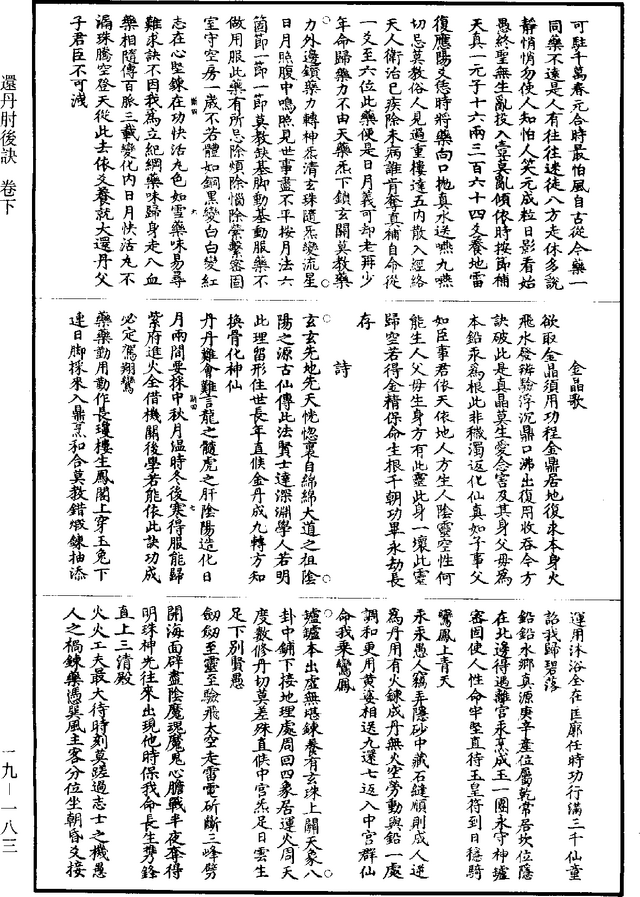 還丹肘後訣 卷下
可駐千萬春元合時最怕風自古從今藥一
同藥不遠是人有往往迷徒八方走休多說
靜悄悄勿使人知怕人笑元成粒日影看始
愚終聖無生亂投入壼莫亂傾依時按節補
天真一元子十六兩三百六十四爻養地雷
復應陽爻徳時將藥向口拋真水送嚥九嚥
切忌莫教俗人見過重樓達五內散入經絡
天人衛治已疾除未病誰肯奪真補自命從
一爻至六位此藥便是日月義可却老再少
年命歸藥力不由天藥炁下鎖玄關莫教藥
力外邊鎖藥力轉神炁清玄珠隨炁變流星
日月照腹中鳴照見世事盡不平按月法六
箇節一節一卽莫教缺基脚動基動服藥不
做用服此藥有所忌除煩除惱除縈繫密固
室守空房一歲不若體如銅黑變白白變紅
志在心堅鍊在功快活九色如雪藥味易尋
難求訣不因我爲立紀綱藥味歸身走八血
藥相隨傳百脈三載變化內日月快活九不
漏珠騰空登天從此去依爻養就大還丹父
子君臣不可淺
金晶歌
欲取金晶須用功程金鼎居地復來本身火
飛水發辨驗浮沉鼎口沸出復用收吞今方
訣破此是真晶莫生愛念害及其身父母爲
本鉛汞爲根此非穢濁返化仙真如子事父
如臣事君依天依地人方生人陰靈空性何
能生人父母生身方有此靈此身一壞此靈
歸空若得金精保命生根千朝功畢永劫長
存
詩
玄玄先地先天恍惚裏自綿綿大道之祖陰
陽之源古仙傳此法賢士達深淵學人若明
此理留形住世長年直候金丹成九轉方知
換骨化神仙
丹丹難會難言龍之髓虎之肝陰陽造化日
月兩間要採中秋月温時冬後寒得服能歸
紫府進火全借機關後學若能依此訣功成
必定駕翔鸞
藥藥勤用動作長瓊樓生鳳閣上穿玉兔下
連日脚採來入鼎烹和合莫教錯煅鍊抽添
運用沐浴全在匡廓任時功行滿三千仙童
詔我歸碧落
鉛鉛水鄉真源庚辛產位屬乾常居坎位隱
在北邊得遇離宮汞烹成玉一團永守神爐
密固使人性命牢堅直待玉皇符到日穩騎
鸞鳳上青天
汞汞愚人竊弄隱砂中藏石縫順則成人逆
爲丹用有火鍊成丹無火空勞動與鉛一處
調和更用黃婆相送九還七返入中宮群仙
命我乘鸞鳳
爐爐本出虛無堪鍊養有玄珠上關天象八
卦中鋪下接地理處周回四象居運火周天
度數修丹切莫差殊直候中宮炁足日雲生
足下別賢愚
劒劒至靈至驗飛太空走雷電斫斷三峰劈
開海面辟盡陰魔䰟魔鬼心膽戰半夜奪得
明珠神光往來出現他時保我命長生攜鋒
直上三清殿
火火工夫最大待時刻莫蹉過志士之機愚
人之禍鍊藥憑巽風主客分位坐朝昏爻接
一九－一八三